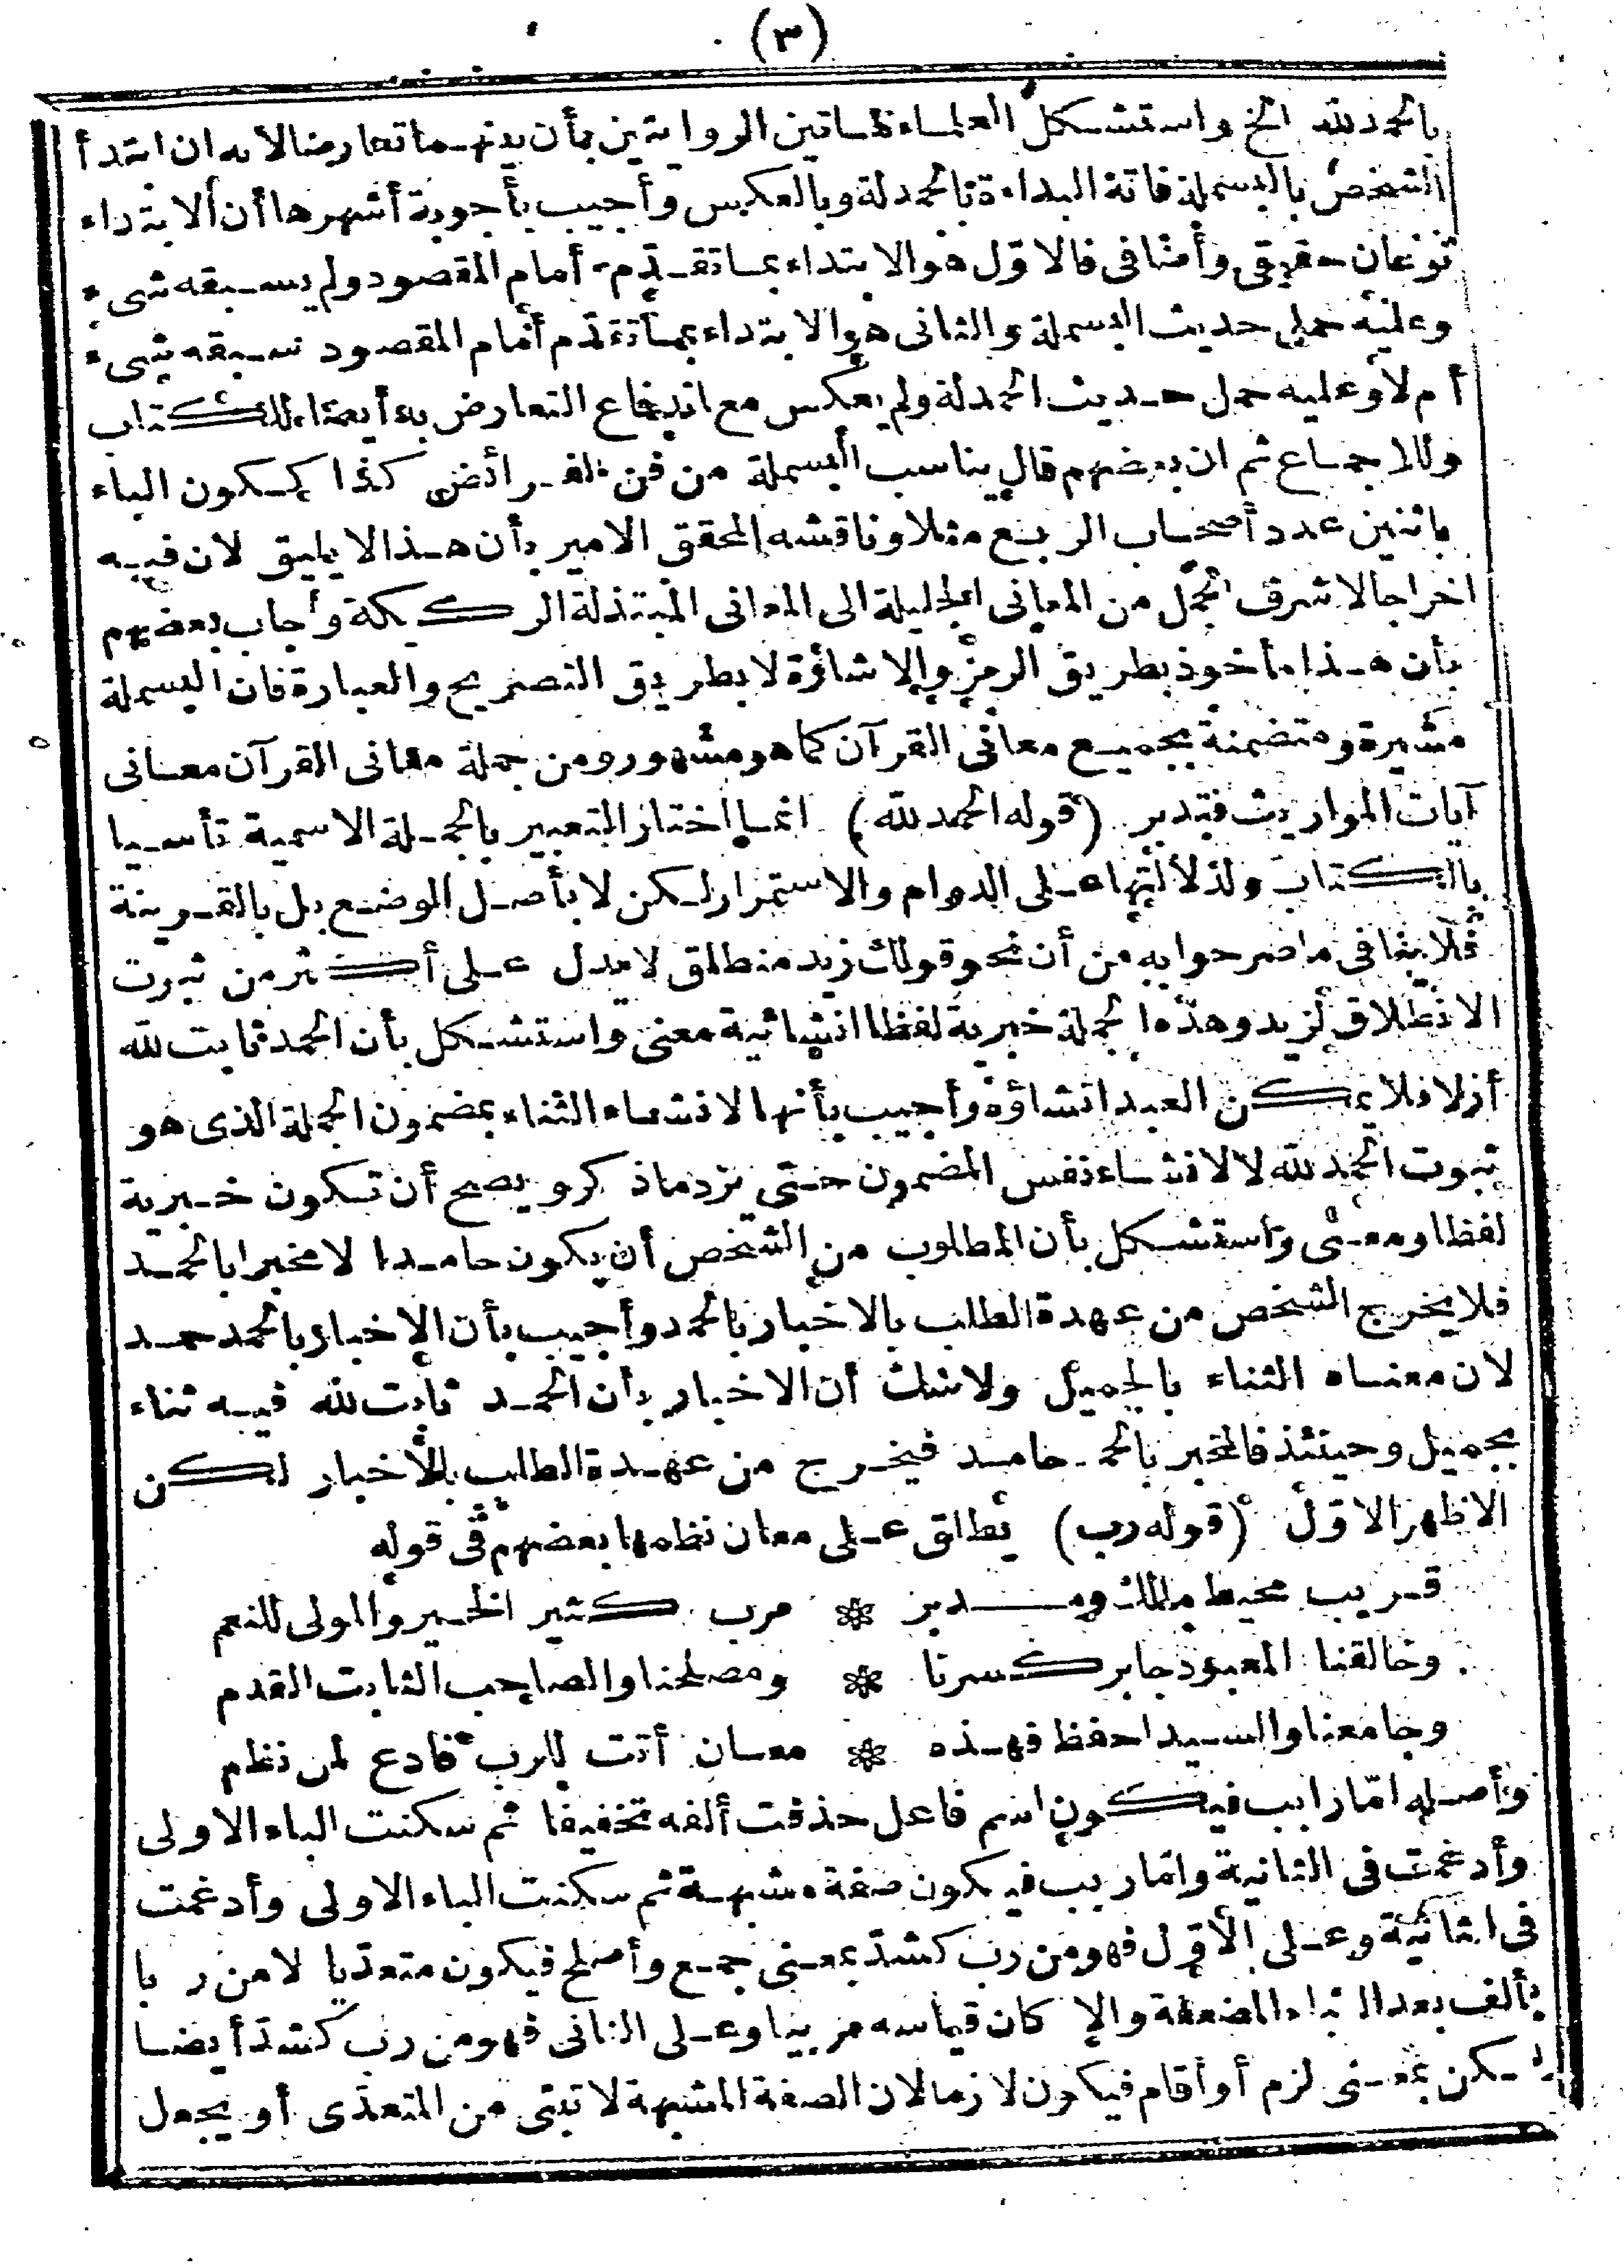 (٣)
بالحمد لله الخ واستشكل العلماء هاتين الروايتين بأن بينهما تعارضا لانه ان ابتدأ
الشخص بالبسملة فاتة البداءة بالحمدلة وبالعكس وأجيب بأجوبة أشهرها أن الابتداء
نوعان حقيقى وأضافى فالاول هو الابتداء بما تقدم أمام المقصود ولم يسبقه شىء
وعليه حمل حديث البسملة والثانى هو الابتداء بما تقدم أمام المقصود سبقه شىء
أم لا وعليه حمل حديث الحمدلة ولم يعكس مع اندفاع التعارض به أيضا للكتاب
وللاجماع ثم ان بعضهم قال يناسب البسملة من فن الفرائض كذا ككون الباء
باثنين عدد أصحاب الربع مثلا وناقشه المحقق الامير بأن هذا لا يليق لان فيه
اخراجا لاشرف الجمل من المعانى الجليلة الى المعانى المبتذلة الركيكة وأجاب بعضهم
بأن هذا مأخوذ بطريق الرمز والاشارة لا بطريق التصريح والعبارة فان البسملة
مشيرة ومتضمنة بجميع معانى القرآن كما هو مشهور ومن جملة معانى القرآن معانى
آيات المواريث فتدبر (قوله الحمد لله) انما اختار التعبير بالجملة الاسمية تأسيا
بالكتاب ولدلالتها على الدوام والاستمرار لكن لا بأصل الوضع بل بالقرينة
فلا ينافى ما صرحوا به من أن نحو قولك زيد منطلق لا يدل على أكثر من ثبوت
الانطلاق لزيد وهذه الجملة خبرية لفظا انشائية معنى واستشكل بأن الحمد ثابت لله
أزلا فلا يمكن العبد انشاؤه وأجيب بأنها لانشاء الثناء بمضمون الجملة الذى هو
ثبوت الحمد لله لا لانشاء نفس المضمون حتى يرد ما ذكر ويصح أن تكون خبرية
لفظا ومعنى واستشكل بأن المطلوب من الشخص أن يكون حامدا لا مخبرا بالحمد
فلا يخرج الشخص من عهدة الطلب بالاخبار بالحمد وأجيب بأن الاخبار بالحمد حمد
لان معناه الثناء بالجميل ولا شك أن الاخبار بأن الحمد ثابت لله فيه ثناء
بجميل وحينئذ فالمخبر بالحمد حامد فيخرج من عهدة الطلب بالأخبار لكن
الاظهر الاول (قوله رب) يطلق على معان نظمها بعضهم فى قوله
قريب محيط مالك ومدبر ❊ مرب كثير الخير والمولى للنعم
وخالقنا المعبود جابر كسرنا ❊ ومصلحنا والصاحب الثابت القدم
وجامعنا والسيد احفظ فهذه ❊ معان أتت للرب فادع لمن نظم
وأصله اما رابب فيكون اسم فاعل حذفت ألفه تخفيفا ثم سكنت الباء الاولى
وأدغمت فى الثانية واما ربب فيكون صفة مشبهة ثم سكنت الباء الاولى وأدغمت
فى الثانية وعلى الأول فهو من رب كشد بمعنى جمع وأصلح فيكون متعديا لا من ربا
بألف بعد الباء المضعفة والا كان قياسه مربيا وعلى الثانى فهو من رب كشد أيضا
لكن بمعنى لزم أو أقام فيكون لازما لان الصفة المشبهة لا تبنى من المتعدى أو يجعل